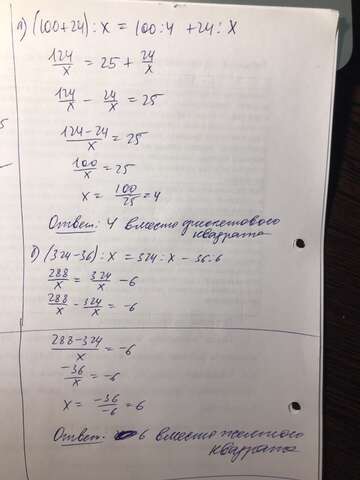 а) (100+24) : x = 100:4 + 24 : x
124/x = 25 + 24/x
124/x - 24/x = 25
124-24/x = 25
100/x = 25
x = 100/25 = 4
Ответ: 4 вместо фиолетового
квадрата
б) (324-36) : x = 324 : x - 36:6
288/x = 324/x - 6
288/x - 324/x = -6
288-324/x = -6
-36/x = -6
x = -36/-6 = 6
Ответ: 6 вместо желтого
квадрата